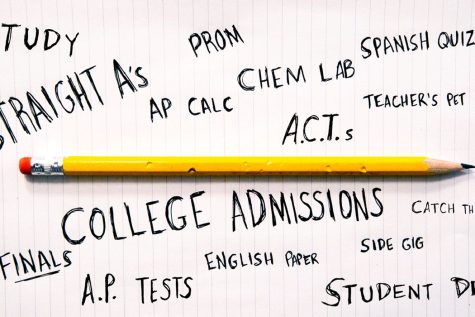 TUDY
PROM
SPANISH QUIZ
STRAIGHT A's
CHEM LAB
AP CALC
TEACHER'S PET
A.C.T.s
COLLEGE ADMISSIONS
CATCH TH
SIDE GIG
FINALS
ENGLISH PAPER
A.P. TESTS
STUDENT D